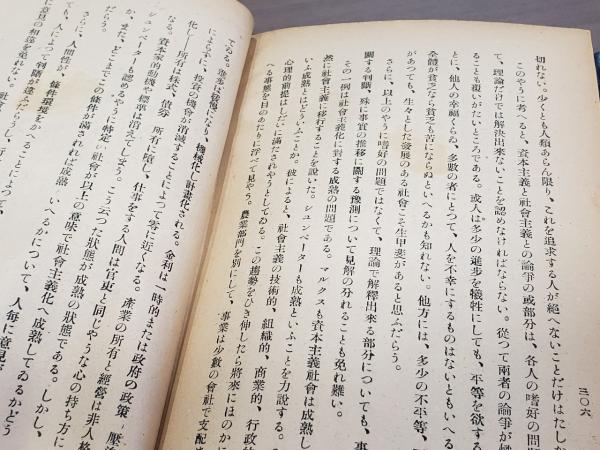 三〇六
切れない。少くとも人類あらん限り、これを追求する人が絶へないことだけはたしか
このやうに考へると、資本主義と社會主義との論爭の或部分は、各人の嗜好の問題
て、理論だけでは解決出來ないことを認めなければならない。從つて兩者の論爭が
ることも覆いがたいところである。或人は多少の進步を犧牲にしても、平等を欲する
とに、他人の幸福ぐらゐ、多數の者にとつて、人を不幸にするものはないともいへる
全體が貧乏なら貧乏も苦にならぬといへるかも知れない。他方には、多少の不平等、
があつても、生々とした發展のある社會こそ生甲斐があると思ふだらう。
さらに、以上のやうに嗜好の問題ではなくて、理論で解釋出來る部分についても、事
關する判斷、殊に事實の推移に關する豫測について見解の分れることも免れ難い。
その一例は社會主義化に對する成熟の問題である。マルクスも資本主義社會は成熟し
然に社會主義に移行することを說いた。シュンペーターも成熟といふことを力說する。
いふ成熟とはどういふことか。彼によると、社會主義の技術的、組織的、商業的、行政的
心理的前提はしだいに滿こされやうとしてゐる。この趨勢をひき伸したら將來にほのか
へる事態を目のあたりに浮べて見やう。農業部門を別にして、事業は少數の會社で支配
てゐる。
化し、機械化し計畫化される。金利は一時的または政府の政策
によらずに、投資の機會が消滅することによつて零に近くなる。產業の所有と經營は非人格
化し――所有は株式、債劵の所有に墮し、仕事をする人間は官吏と同じやうな心の持ち方に
なる。資本家的動機や標準は消えてしまう。こう云つた狀態が成熟の狀態である。しかし、
シュンペーターも認めるやうに特定の社會が以上の意味で社會主義化へ成熟してゐるかどう
か、また、どこまでこの條件が滿されれば成熟といへるかについて、人每に意見が
だらう。
さらに、人間性が、條件環境をかへることによつて、
人によつて判斷が違ふだらうし、
に意見の相違を免れない。